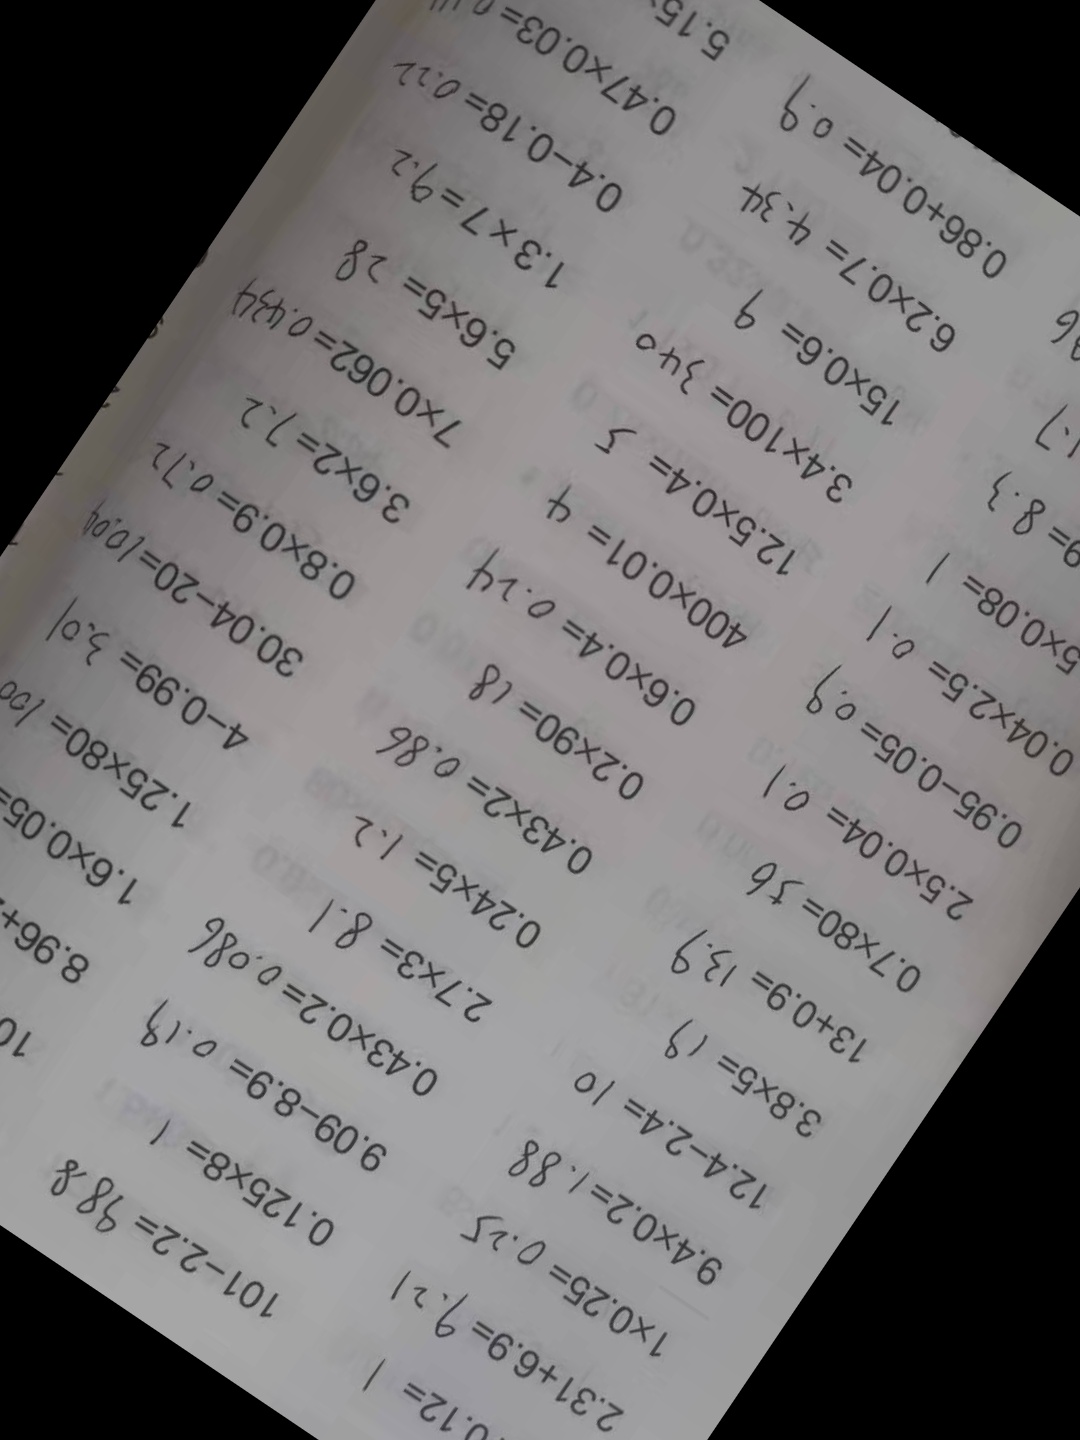 0.12= 1
2.31+6.9= 9.21
1×0.25= 0.25
9.4×0.2= 1.88
12.4−2.4= 10
3.8×5= 19
13+0.9= 13.9
0.7×80= 56
2.5×0.04= 0.1
0.95−0.05= 0.9
0.04×2.5= 0.1
5×0.08= 1
9= 8.3
1.7
101−2.2= 98.8
0.125×8= 1
9.09−8.9= 0.19
0.43×0.2= 0.086
2.7×3= 8.1
0.24×5= 1.2
0.43×2= 0.86
0.2×90= 18
0.6×0.4= 0.24
400×0.01= 4
12.5×0.4= 5
3.4×100= 340
15×0.6= 9
6.2×0.7= 4.34
0.86+0.04= 0.9
10
8.96+
1.6×0.05=
1.25×80= 100
4−0.99= 3.01
30.04−20= 10.04
0.8×0.9= 0.72
3.6×2= 7.2
7×0.062= 0.434
5.6×5= 28
1.3×7= 9.2
0.4−0.18= 0.22
0.47×0.03=
5.15